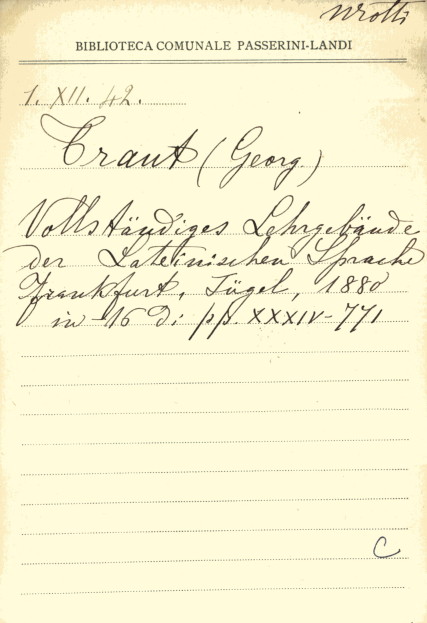 Wrotti
BIBLIOTECA COMUNALE PASSERINI-LANDI
1. XII. 42.
Traut (Georg.)
Vollständiges Lehrgebäude
der Lateinischen Sprache
Frankfurt, Jügel, 1880
in-16 di pp. XXXIV-771
C